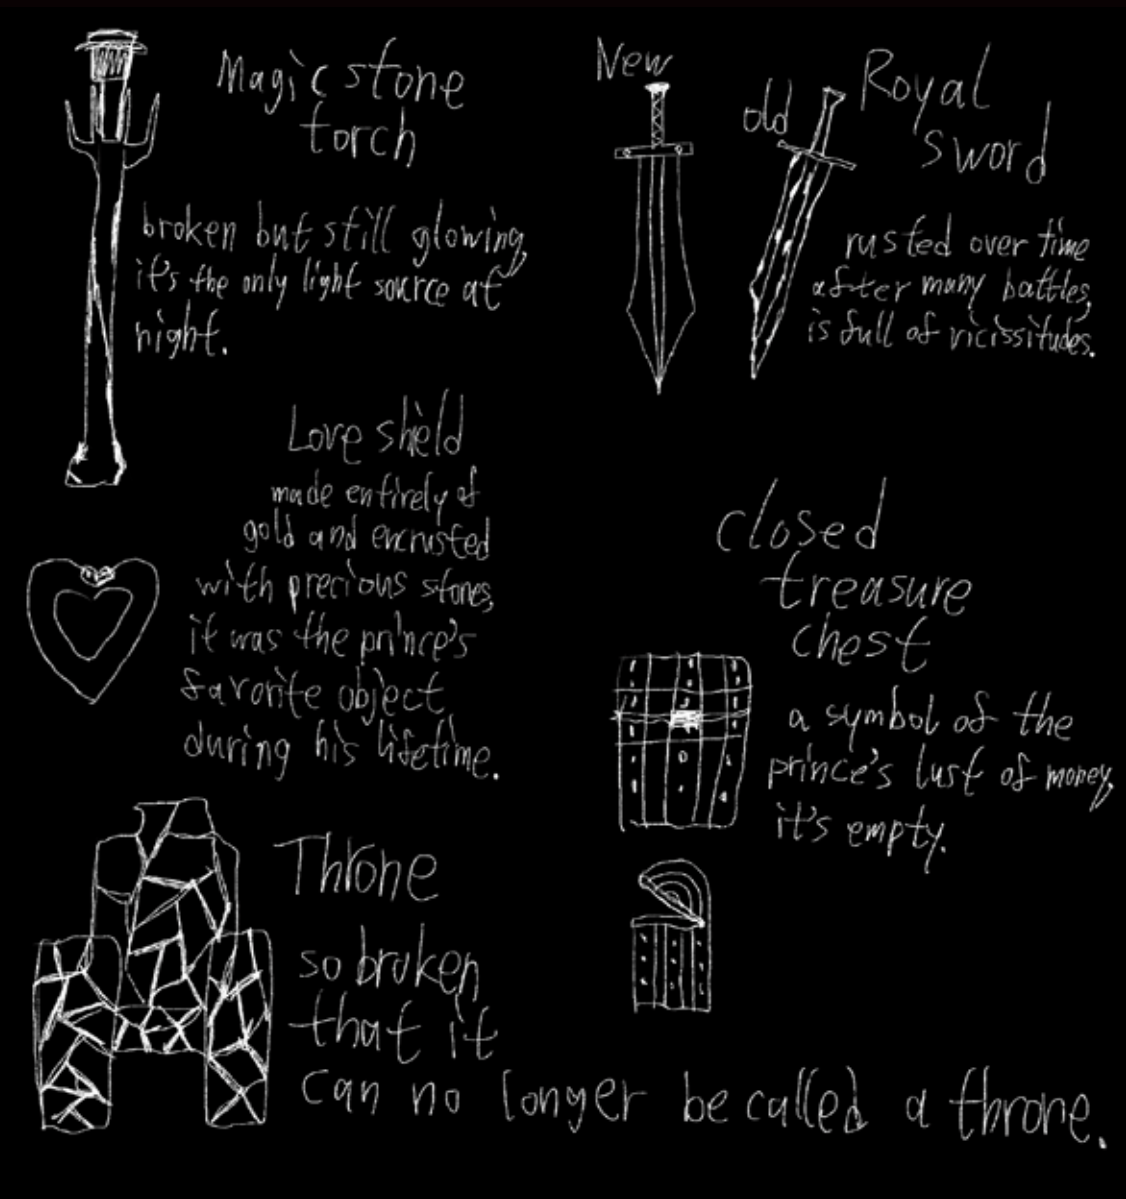 Magic stone
torch
broken but still glowing,
it's the only light source at
night.
New
old
Royal
sword
rusted over time
after many battles,
is full of vicissitudes.
Love shield
made entirely of
gold and encrusted
with precious stones,
it was the prince's
favorite object
during his lifetime.
closed
treasure
chest
a symbol of the
prince's lust of money,
it's empty.
Throne
so broken
that it
can no longer be called a throne.